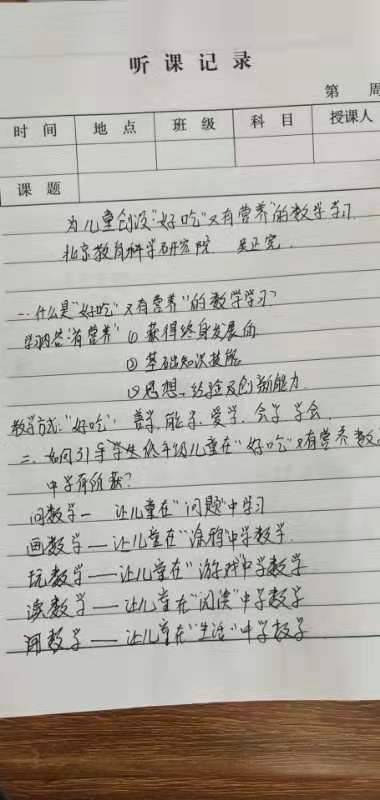 听课记录
第 周
时间 地点 班级 科目 授课人
课题
为儿童创设"好吃"又有营养"的数学学习
北京教育科学研究院 吴正宪.
一.什么是"好吃"又有营养"的数学学习?
学习内容:"有营养" ① 获得终身发展的
② 基础知识技能
③ 思想、经验及创新能力
教学方式:"好吃": 善学、乐学、爱学、会学 学会
二、如何引导学生低年级儿童在"好吃"又有营养 数
中学有所获?
问数学— 让儿童在"问题"中学习
画数学——让儿童在"涂鸦"中学数学
玩数学——让儿童在"游戏"中学数学
读数学——让儿童在"阅读"中学数学
用数学——让儿童在"生活"中学数学